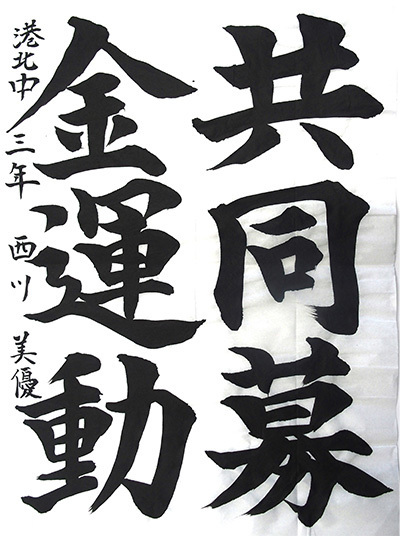 共同募
金運動
港北中三年 西川 美優